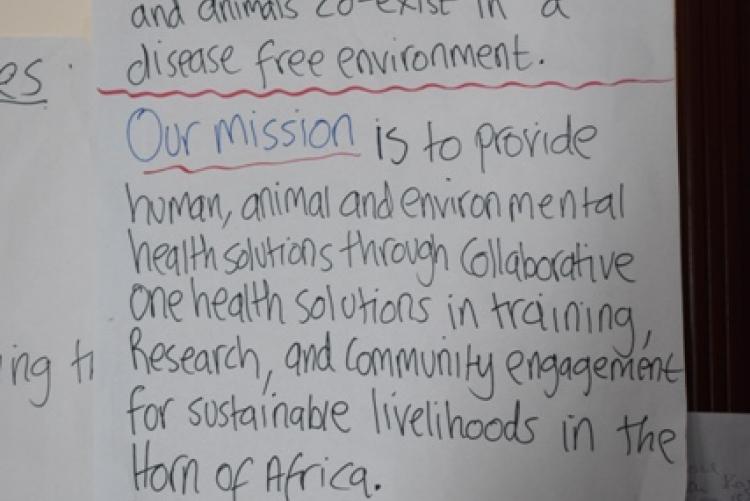 and animals co-exist in a
disease free environment.
es
Our mission is to provide
human, animal and environmental
health solutions through collaborative
One health solutions in training,
ing
Research, and Community engagement
for sustainable livelihoods in the
Horn of Africa.